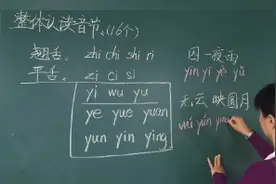 整体认读音节(16个)
翘舌: zhi chi shi ri
平舌: zi ci si
yi wu yu
ye yue yuan
yun yin ying
因一夜雨
yīn yí yè yǔ
无云映圆月
wú yún yìng